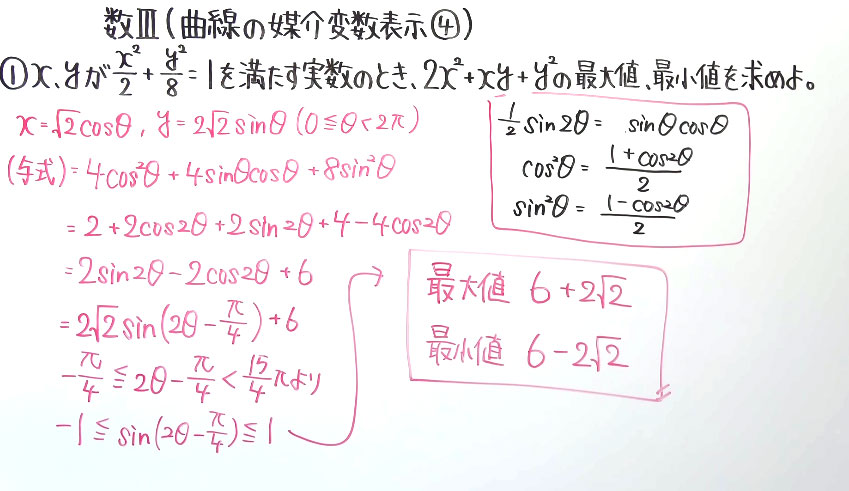 数Ⅲ(曲線の媒介変数表示④)
①x、yがx²/2+y²/8=1を満たす実数のとき、2x²+xy+y²の最大値、最小値を求めよ。
x=√2cosθ, y=2√2sinθ(0≦θ<2π)
(与式)=4cos²θ+4sinθcosθ+8sin²θ
=2+2cos2θ+2sin2θ+4-4cos2θ
=2sin2θ-2cos2θ+6
=2√2sin(2θ-π/4)+6
-π/4≦2θ-π/4<15/4πより
-1≦sin(2θ-π/4)≦1
1/2sin2θ= sinθcosθ
cos²θ=(1+cos2θ)/2
sin²θ=(1-cos2θ)/2
最大値 6+2√2
最小値 6-2√2